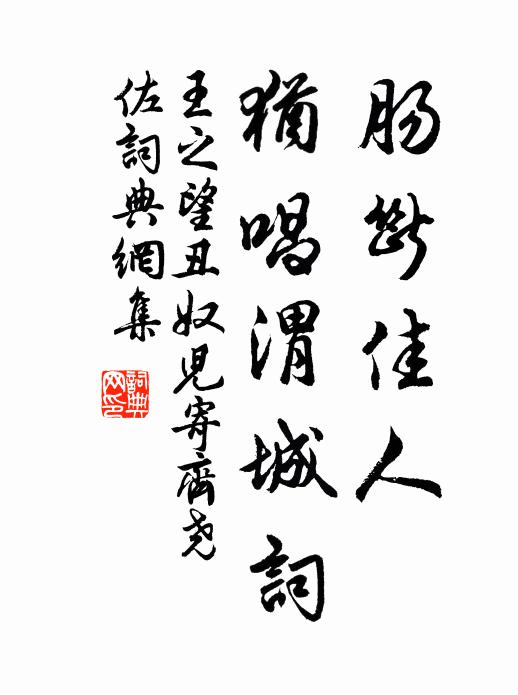 腸斷佳人
猶唱渭城詞
王之望丑奴兒寄齊尧
佐詞典網集
詞典
网印